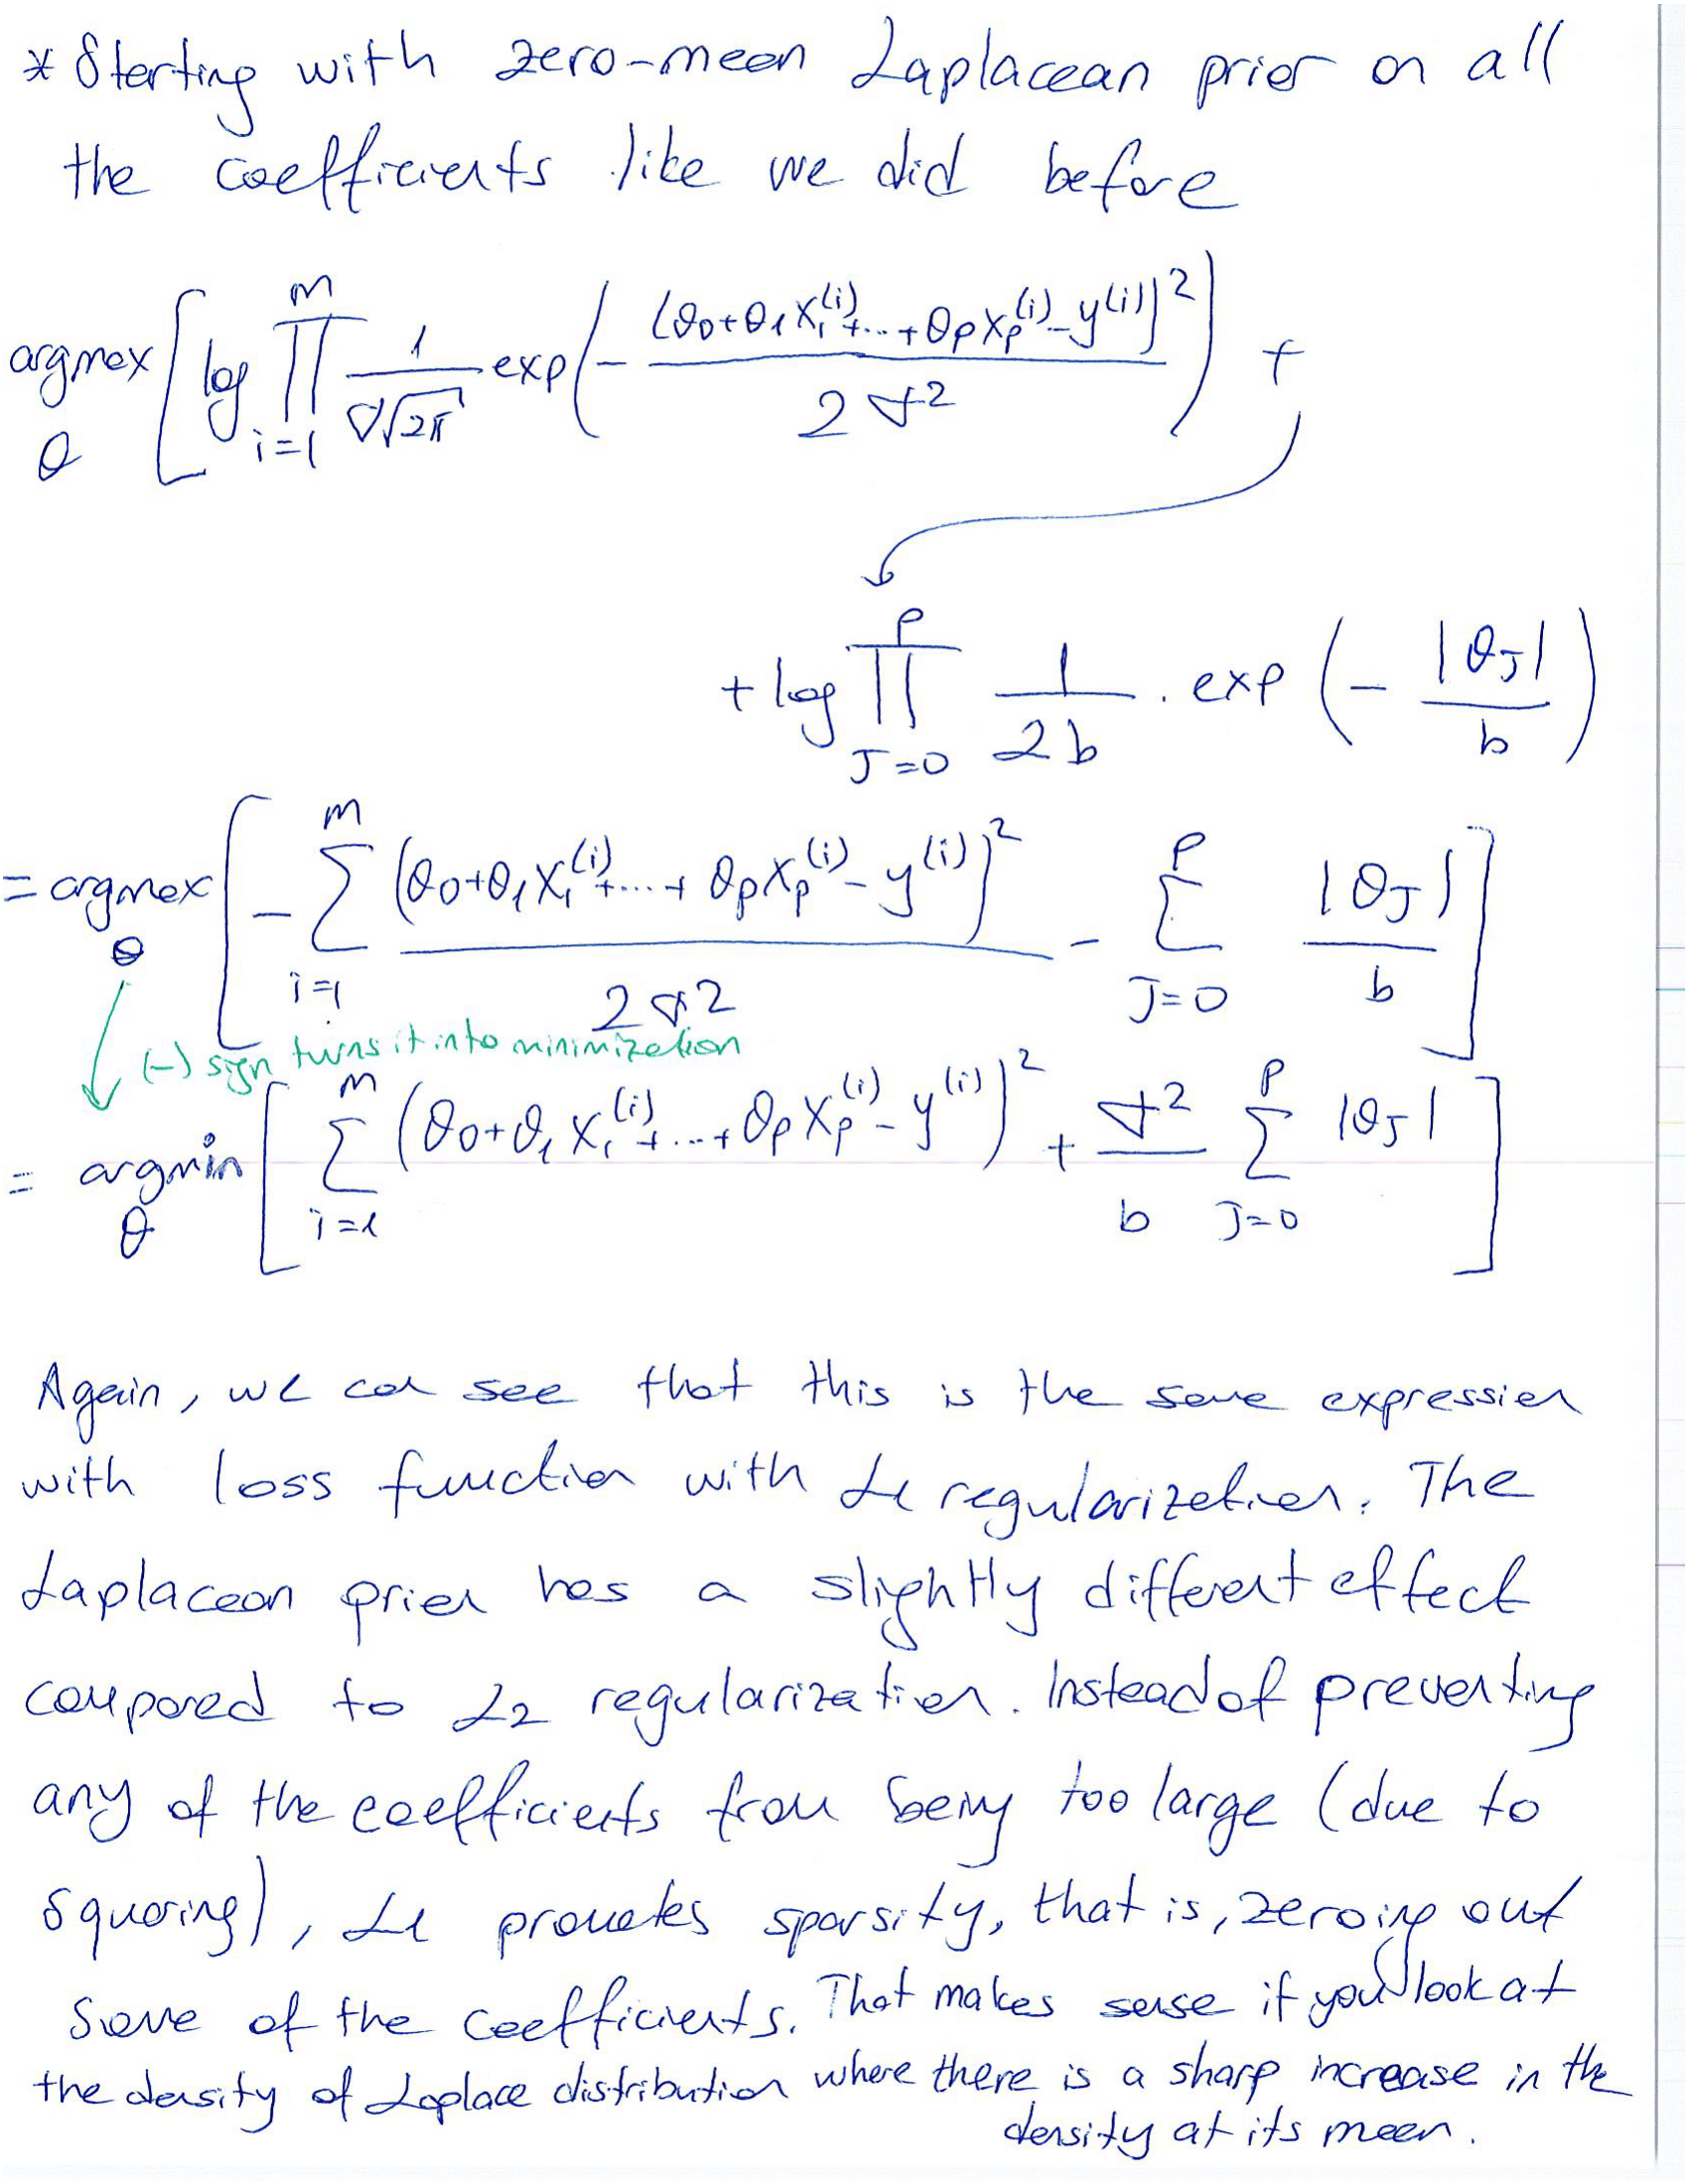 * Starting with zero-mean Laplacean prior on all
the coefficients like we did before
argmax_θ [ log ∏_{i=1}^{m} 1/(σ√2π) exp( - (θ0+θ1x1^(i)+...+θpxp^(i)-y^(i))^2 / 2σ^2 ) +
+ log ∏_{J=0}^{p} 1/2b . exp ( - |θJ|/b )
= argmax_θ [ - ∑_{i=1}^{m} (θ0+θ1x1^(i)+....+θpxp^(i)-y^(i))^2 / 2σ^2 - ∑_{J=0}^{p} |θJ|/b ]
(-) sign turns it into minimization
= argmin_θ [ ∑_{i=1}^{m} (θ0+θ1x1^(i)+...+θpxp^(i)-y^(i))^2 + σ^2/b ∑_{J=0}^{p} |θJ| ]
Again, we can see that this is the same expression
with loss function with L1 regularization. The
Laplacean prior has a slightly different effect
compared to L2 regularization. Instead of preventing
any of the coefficients from being too large (due to
squaring), L1 promotes sparsity, that is, zeroing out
some of the coefficients. That makes sense if you look at
the density of Laplace distribution where there is a sharp increase in the
density at its mean.